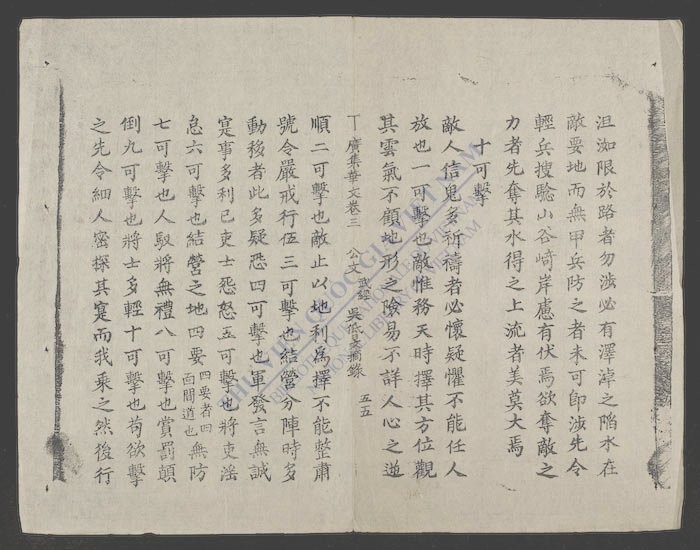 沮洳限於路者勿涉必有澤淖之陷水在
敵要地而無甲兵防之者未可即涉先令
輕兵搜騐山谷﨑岸慮有伏焉欲奪敵之
力者先奪其水得之上流者美莫大焉
十可擊
敵人信鬼多祈禱者必懷疑懼不能任人
放也一可擊也敵惟務天時擇其方位觀
其雲氣不顧地形之險易不詳人心之逆
丁廣集華文卷三 公文 武經 吳 摘錄 五五
順二可擊也敵止以地利為擇不能整肅
號令嚴戒行伍三可擊也結營分陣時多
動移者此多疑恐四可擊也軍發言無誠
寔事多利己吏士怨怒五可擊也將吏淫
怠六可擊也結營之地四要四要者四面間道也無防
七可擊也人馭將無禮八可擊也賞罰顛
倒九可擊也將士多輕十可擊也茍欲擊
之先令細人密探其寔而我乘之然後行
THƯ VIỆN QUỐC GIA VIỆT NAM
BIBLIOTHEQUE NATIONALE DU VIETNAM
NATIONAL LIBRARY OF VIETNAM